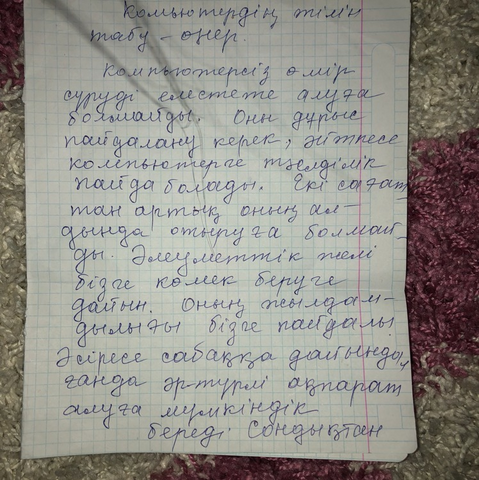 Комьютердің тілін
табу – өнер.
Компьютерсіз өмір
суруді елестете алуға
болмайды. Оны дұрыс
пайдалану керек, әйтпесе
компьютерге тәелділік
пайда болады. Екі сағат
тан артық оның ал-
дында отыруға болмай-
ды. Әлеуметтік желі
бізге көмек беруге
дайын. Оның жылдам-
дылығы бізге пайдалы
Әсіресе сабаққа дайындал
ғанда әр-түрлі ақпарат
алуға мүмкіндік
береді Сондықтан